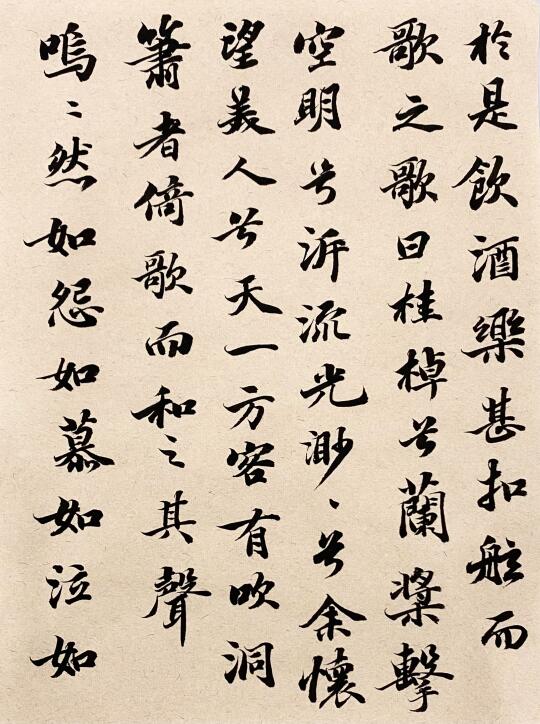 於是飲酒樂甚扣舷而
歌之歌曰桂棹兮蘭槳擊
空明兮泝流光渺〻兮余懷
望美人兮天一方客有吹洞
簫者倚歌而和之其聲
嗚〻然如怨如慕如泣如